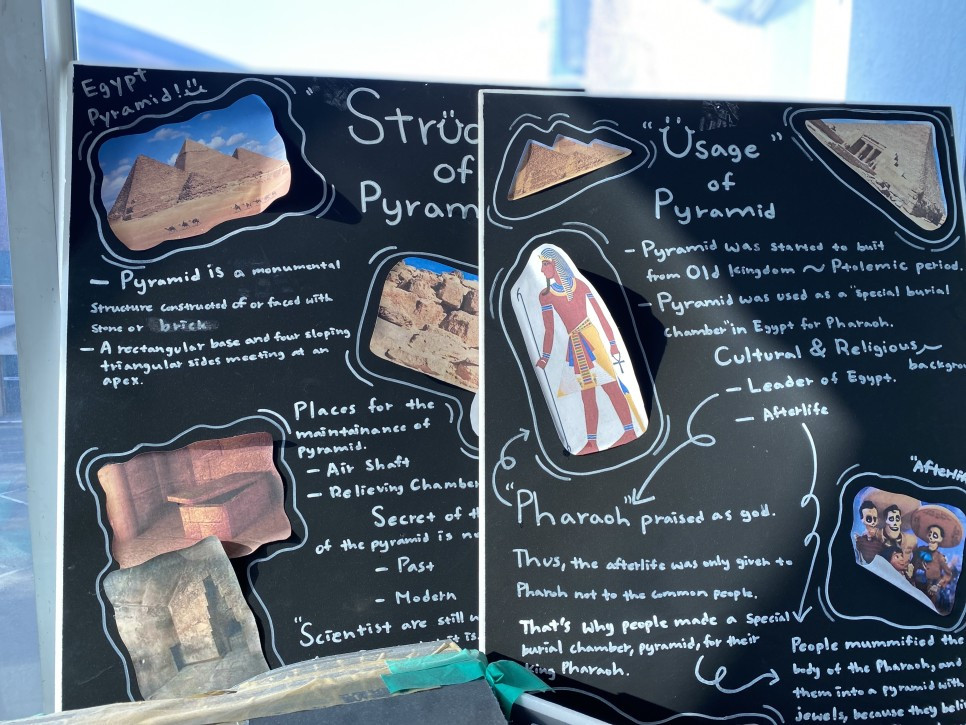 Egypt
Pyramid!
Strüc
of
Pyram
— Pyramid is a monumental
structure constructed of or faced with
stone or brick
— A rectangular base and four sloping
triangular sides meeting at an
apex.
Places for the
maintainance of
pyramid.
— Air Shaft
— Relieving Chamber
Secret of
of the pyramid is
— Past
— Modern
"Scientist are still
"Üsage"
of
Pyramid
— Pyramid was started to buit
from Old kingdom ~ Ptolemic period.
— Pyramid was used as a "special burial
chamber" in Egypt for Pharaoh.
Cultural & Religious
backgrou
— Leader of Egypt.
— Afterlife
"Pharaoh" praised as god.
Thus, the afterlife was only given to
Pharoh not to the common people.
That's why people made a special
burial chamber, pyramid, for their
king Pharaoh.
"Afterlif
People mummified the
body of the Pharaoh, and
them into a pyramid with
jewels, because they beli